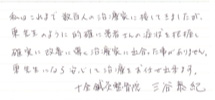 私はこれまで数百人の治療家に接してきましたが、
粟生先生のように的確に患者さんの症状を把握し
確実に改善に導く治療家に出会った事がありません。
先生になら安心して治療をお任せ出来ます。
十条鍼灸整骨院 三谷 紀